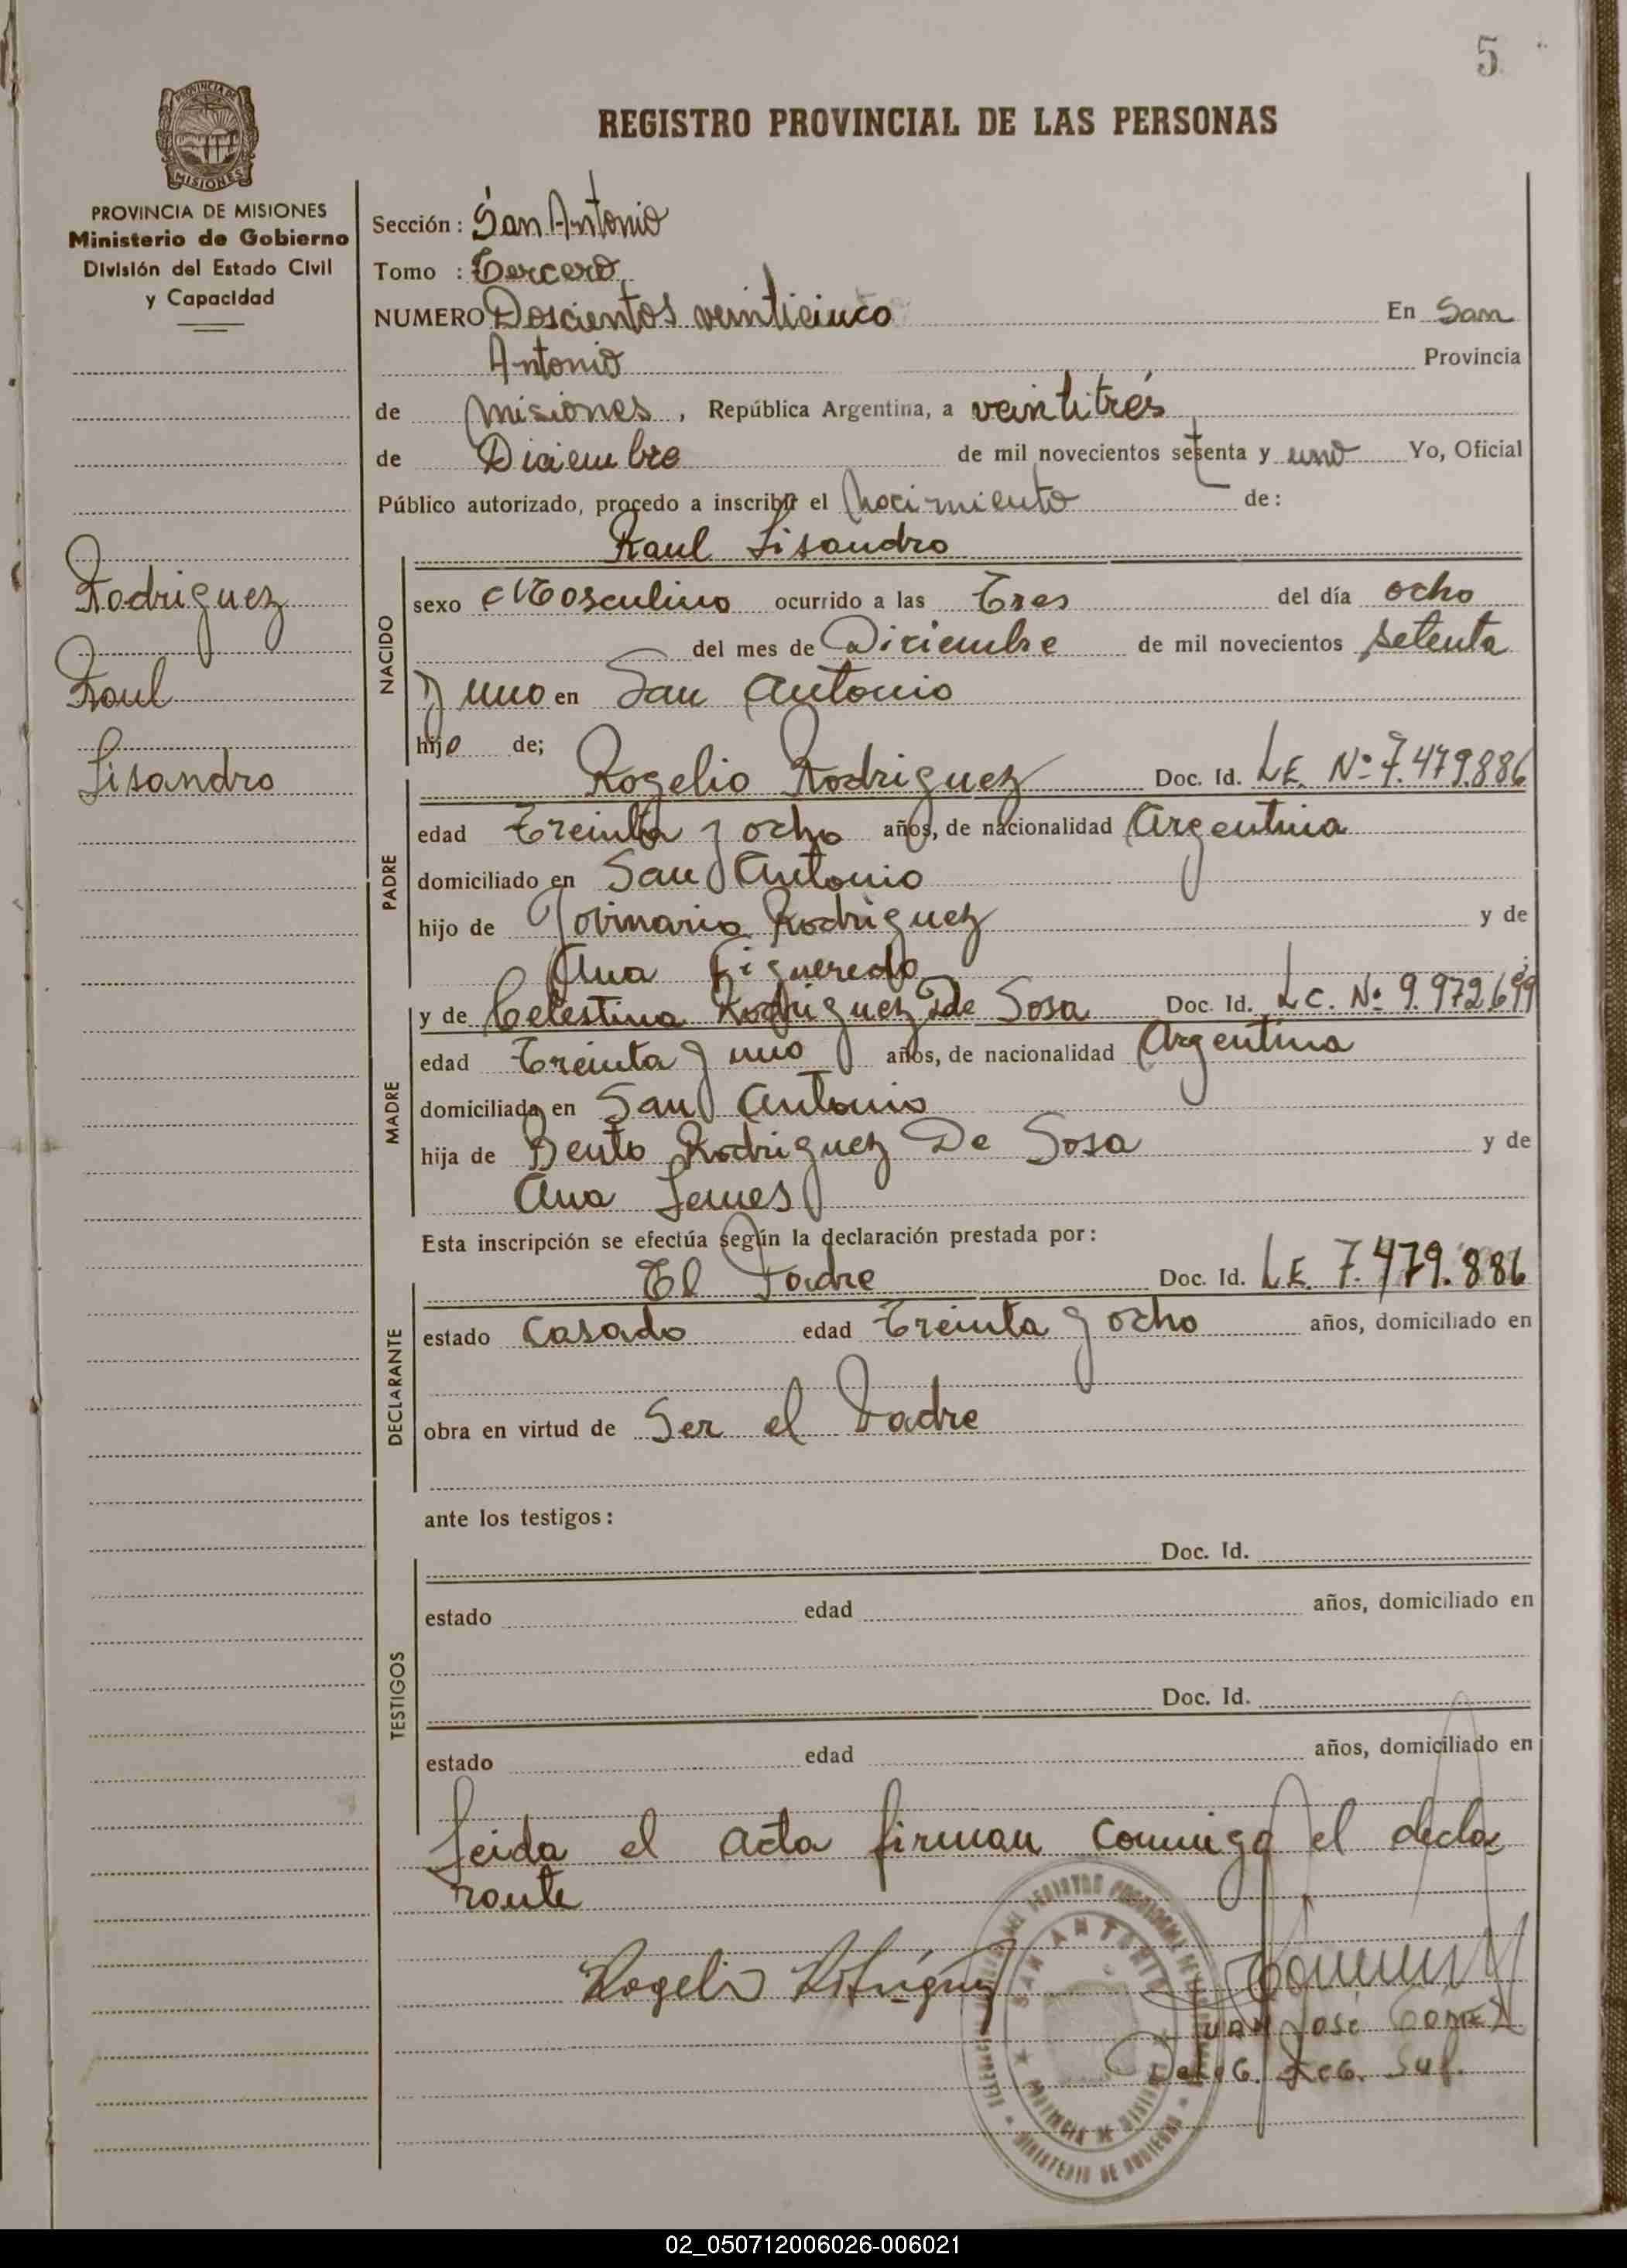 5
REGISTRO PROVINCIAL DE LAS PERSONAS
PROVINCIA DE MISIONES
PROVINCIA DE MISIONES
Ministerio de Gobierno
División del Estado Civil
y Capacidad
Rodriguez
Raul
Lisandro
Sección: San Antonio
Tomo : Tercero
NUMERO Doscientos veinticinco En San
Antonio Provincia
de Misiones, República Argentina, a veintitrés
de Diciembre de mil novecientos setenta y uno Yo, Oficial
Público autorizado, procedo a inscribir el Nacimiento de:
Raul Lisandro
NACIDO
sexo Masculino ocurrido a las Tres del día ocho
del mes de Diciembre de mil novecientos setenta
y uno en San Antonio
hijo de;
PADRE
Rogelio Rodriguez Doc. Id. LE Nº 7.479.886
edad Treinta y ocho años, de nacionalidad Argentina
domiciliado en San Antonio
hijo de Rodriguez y de
Ana Figueredo
MADRE
y de Celestina Rodriguez De Sosa Doc. Id. LC. Nº 9.972.699
edad Treinta y uno años, de nacionalidad Argentina
domiciliada en San Antonio
hija de Bento Rodriguez De Sosa y de
Ana Lemes
Esta inscripción se efectúa según la declaración prestada por:
DECLARANTE
El Padre Doc. Id. LE 7.479.886
estado Casado edad Treinta y ocho años, domiciliado en
obra en virtud de Ser el Padre
ante los testigos:
TESTIGOS
Doc. Id.
estado edad años, domiciliado en
Doc. Id.
estado edad años, domiciliado en
Leida el acta firman conmigo el decla
rante
Rogelio Rodríguez
JUAN José Gómez
Deleg. Reg. Sup.
SAN ANTONIO
PROVINCIA DE MISIONES
MINISTERIO DE GOBIERNO
02_050712006026-006021